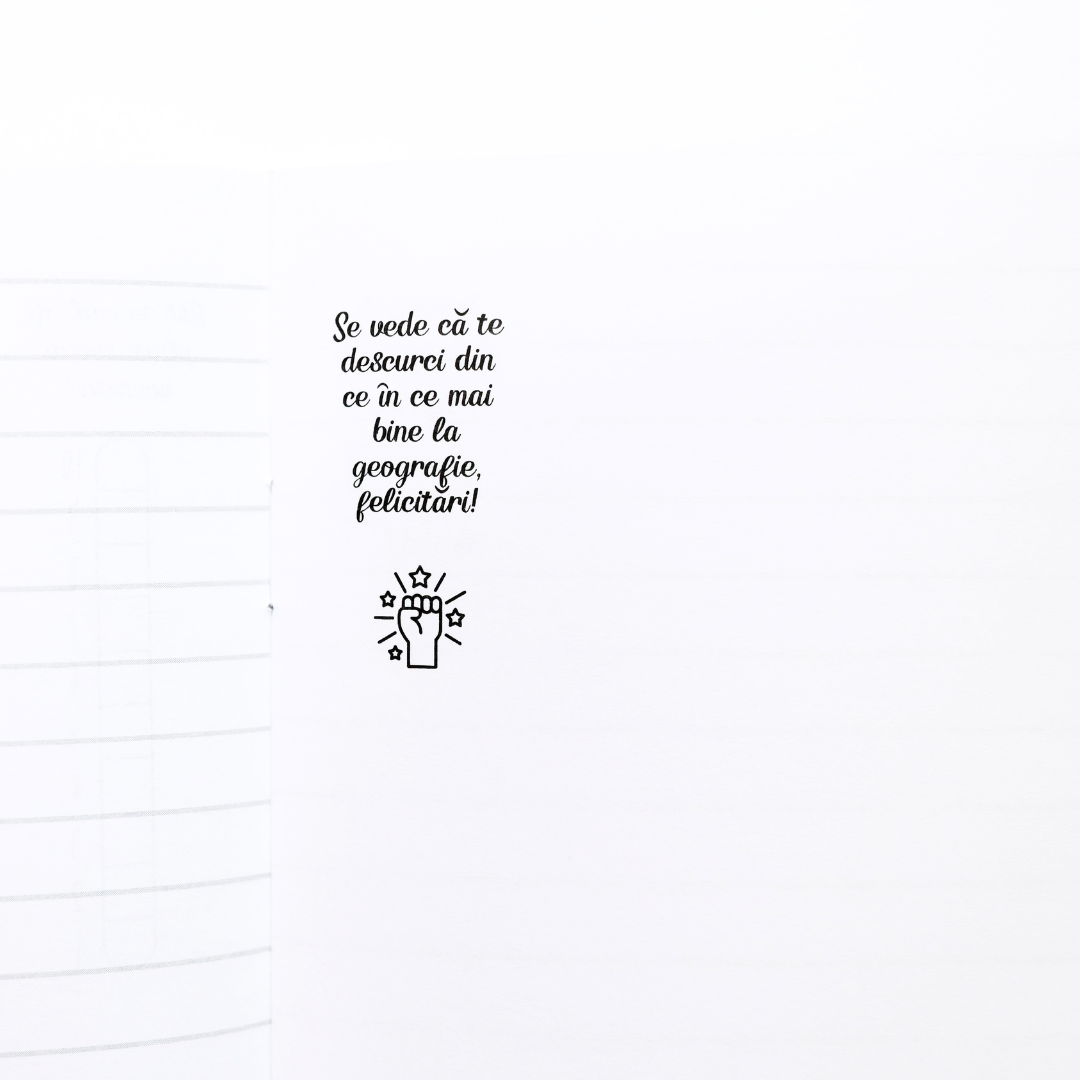 Se vede că te
descurci din
ce în ce mai
bine la
geografie,
felicitări!